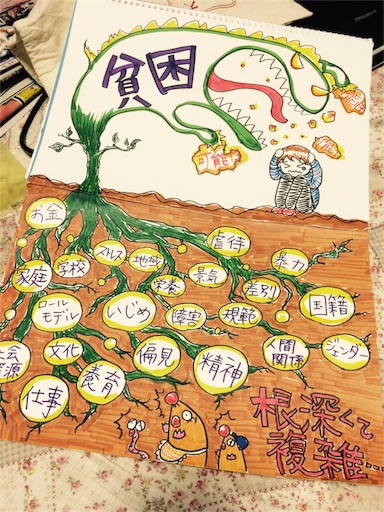 貧困
可能性
お金
家庭
学校
ストレス
地域
虐待
暴力
栄養
景気
差別
国籍
ロール
モデル
いじめ
障害
規範
人間
関係
ジェンダー
社会
資源
文化
偏見
精神
養育
仕事
根深くて
複雑…